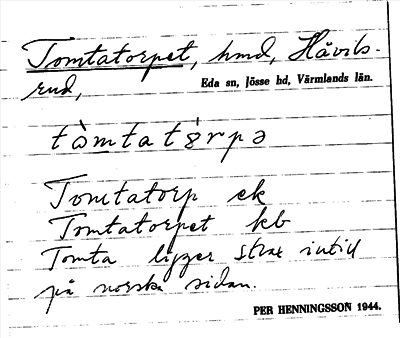 Tomtatorpet, hmd, Håvils-
rud,
Eda sn, Jösse hd, Värmlands län.
tò̀mtatŏ́rpə
Tomtatorp ek
Tomtatorpet kb
Tomta ligger strax intill
på norska sidan.
PER HENNINGSSON 1944.